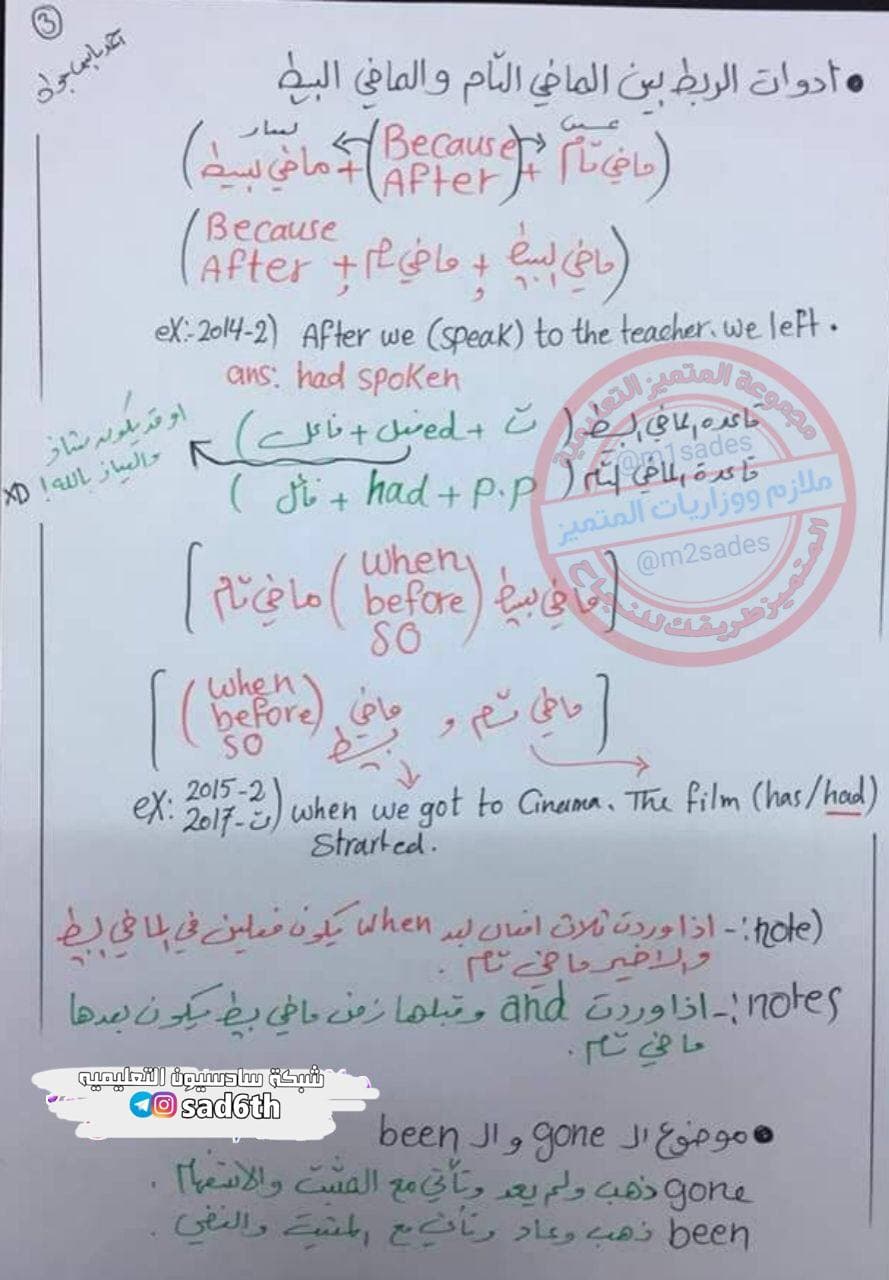 3
• ادوات الربط بين الماضي التام والماضي البسيط
يسار
(ماضي بسيط + (Because → + ماضي تام)
After)
(Because
After + ماضي تام + ماضي بسيط)
ex:-2014-2) After we (speak) to the teacher, we left.
ans: had spoken
قاعدة الماضي البسيط (فاعل + فعل ed + ت)
او قد يكون شاذ
والعياذ بالله! XD
قاعدة الماضي التام (فاعل + had + p.p)
[ماضي تام (when
before) ماضي بسيط]
so
[(when
before) ماضي بسيط و ماضي تام]
so
ex: 2015-2
2017-ت) when we got to Cinema, The film (has/had)
Strarted.
note):- اذا وردت ثلاث افعال بعد when يكون فعلين في الماضي البسيط
والاخير ماضي تام .
notes:- اذا وردت and وقبلها زمن ماضي بسيط يكون بعدها
ماضي تام .
• موضوع الـ gone و الـ been
gone ذهب ولم يعد وتأتي مع المثبت والاستفهام .
been ذهب وعاد وتأتي مع المثبت والنفي .
مجموعة المتميز التعليمية
@m1sades
ملازم ووزاريات المتميز
@m2sades
المتميز طريقك للنجاح
شبكة سادسيون التعليميه
sad6th